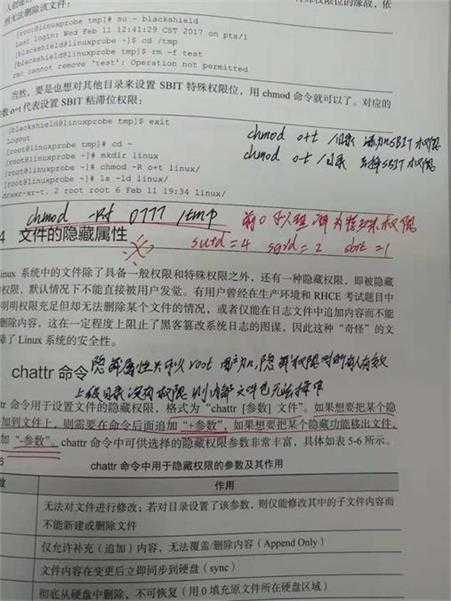 到无法删除该文件：
[root@linuxprobe tmp]# su - blackshield
Last login: Wed Feb 11 12:41:29 CST 2017 on pts/1
[blackshield@linuxprobe ~]$ cd /tmp
[blackshield@linuxprobe tmp]$ rm -f test
rm: cannot remove 'test': Operation not permitted
当然，要是也想对其他目录来设置 SBIT 特殊权限位，用 chmod 命令就可以了。对应的
数 o+t 代表设置 SBIT 粘滞位权限：
[blackshield@linuxprobe tmp]$ exit
Logout
[root@linuxprobe tmp]# cd ~
[root@linuxprobe ~]# mkdir linux
[root@linuxprobe ~]# chmod -R o+t linux/
[root@linuxprobe ~]# ls -ld linux/
drwxr-xr-t. 2 root root 6 Feb 11 19:34 linux/
chmod o+t /目录 添加SBIT权限
chmod o-t /目录 去掉SBIT权限
chmod -Rf 0777 /tmp
suid=4 sgid=2 sbit=1
4 文件的隐藏属性
inux 系统中的文件除了具备一般权限和特殊权限之外，还有一种隐藏权限，即被隐藏
权限，默认情况下不能直接被用户发觉。有用户曾经在生产环境和 RHCE 考试题目中
明明权限充足但却无法删除某个文件的情况，或者仅能在日志文件中追加内容而不能
删除内容，这在一定程度上阻止了黑客篡改系统日志的图谋，因此这种“奇怪”的文
障了 Linux 系统的安全性。
chattr 命令
tr 命令用于设置文件的隐藏权限，格式为“chattr [参数] 文件”。如果想要把某个隐
加到文件上，则需要在命令后面追加“+参数”，如果想要把某个隐藏功能移出文件，
加“-参数”。chattr 命令中可供选择的隐藏权限参数非常丰富，具体如表 5-6 所示。
6 chattr 命令中用于隐藏权限的参数及其作用
数 作用
无法对文件进行修改；若对目录设置了该参数，则仅能修改其中的子文件内容而
不能新建或删除文件
仅允许补充（追加）内容，无法覆盖/删除内容（Append Only）
文件内容在变更后立即同步到硬盘（sync）
彻底从硬盘中删除，不可恢复（用 0 填充原文件所在硬盘区域）